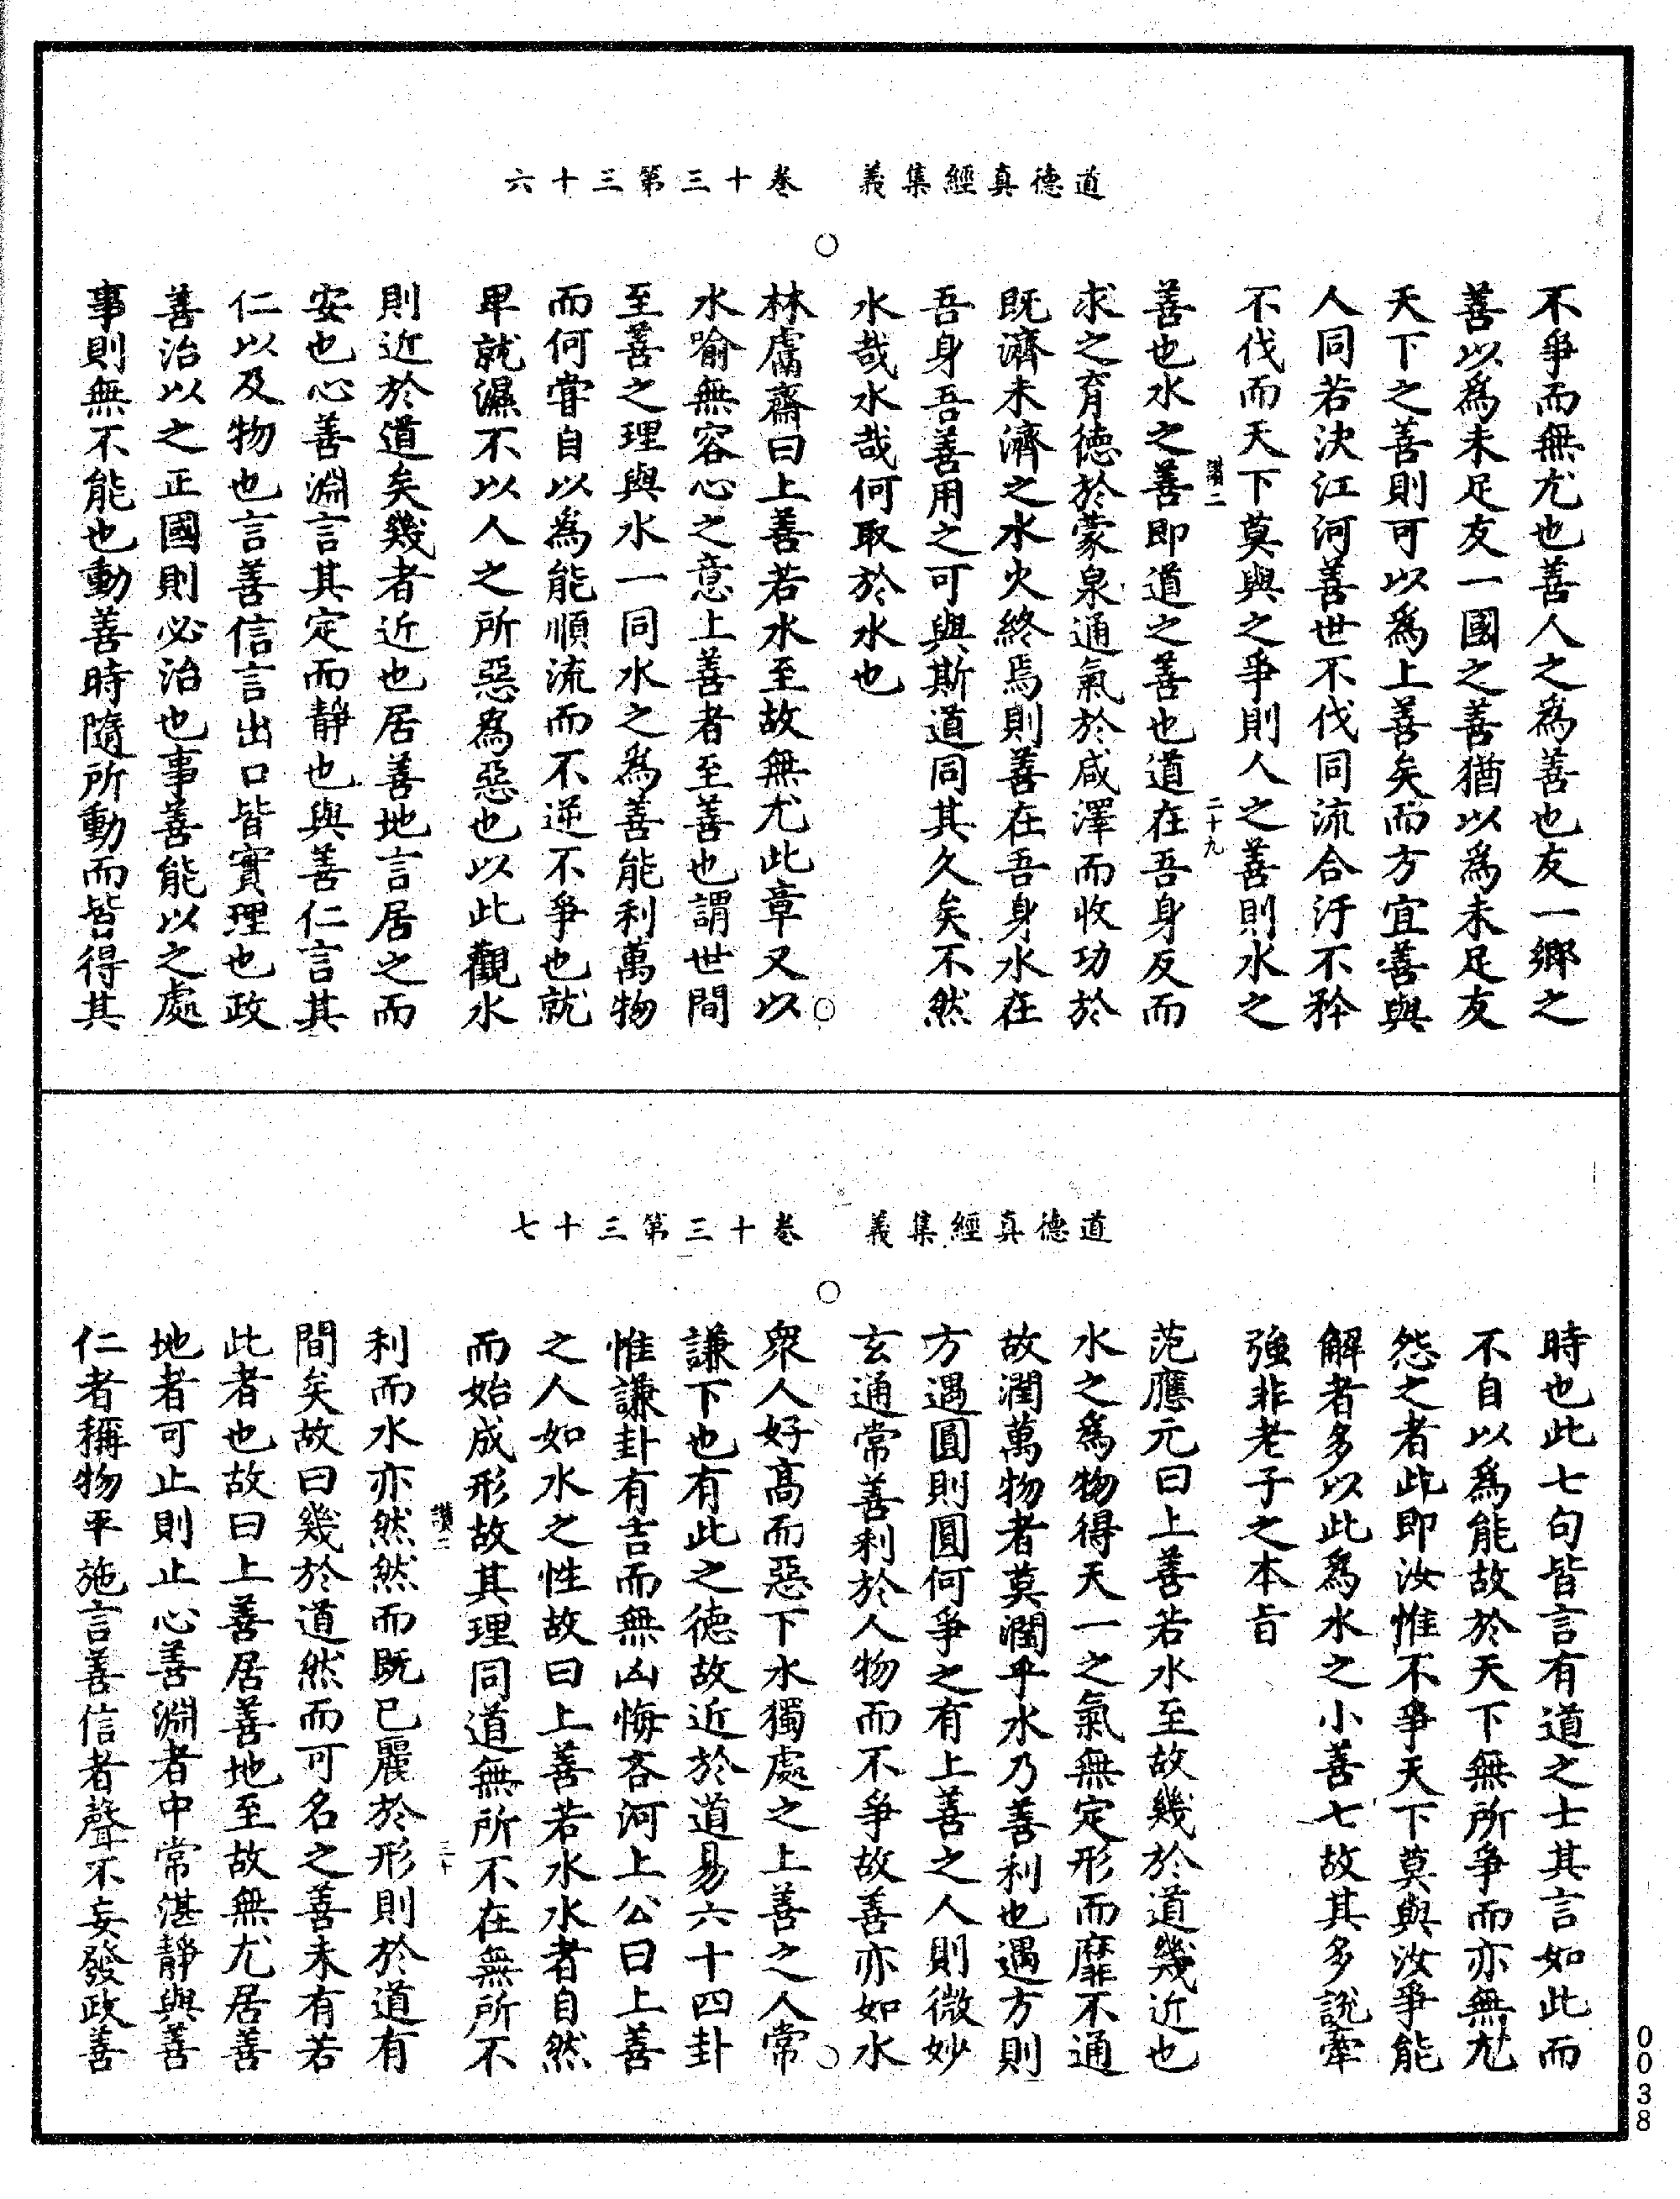 道德真經集義 卷十三第三十六
不爭而無尤也善人之爲善也友一鄉之
善以爲未足友一國之善猶以爲未足友
天下之善則可以爲上善矣而方宜善與
人同若決江河善世不伐同流合汙不矜
不伐而天下莫與之爭則人之善則水之
讚二 二十九
善也水之善即道之善也道在吾身反而
求之育德於蒙泉通氣於咸澤而收功於
既濟未濟之水火終焉則善在吾身水在
吾身吾善用之可與斯道同其久矣不然
水哉水哉何取於水也
林鬳齋曰上善若水至故無尤此章又以
水喻無容心之意上善者至善也謂世間
至善之理與水一同水之爲善能利萬物
而何甞自以爲能順流而不逆不爭也就
卑就濕不以人之所惡爲惡也以此觀水
則近於道矣幾者近也居善地言居之而
安也心善淵言其定而靜也與善仁言其
仁以及物也言善信言出口皆實理也政
善治以之正國則必治也事善能以之處
事則無不能也動善時隨所動而皆得其
道德真經集義 卷十三第三十七
時也此七句皆言有道之士其言如此而
不自以爲能故於天下無所爭而亦無尤
怨之者此即汝惟不爭天下莫與汝爭能
解者多以此爲水之小善七故其多說牽
強非老子之本旨
范應元曰上善若水至故幾於道幾近也
水之爲物得天一之氣無定形而靡不通
故潤萬物者莫潤乎水乃善利也遇方則
方遇圓則圓何爭之有上善之人則微妙
玄通常善利於人物而不爭故善亦如水
衆人好高而惡下水獨處之上善之人常
謙下也有此之德故近於道易六十四卦
惟謙卦有吉而無凶悔吝河上公曰上善
之人如水之性故曰上善若水水者自然
而始成形故其理同道無所不在無所不
讚二 三十
利而水亦然然而既已麗於形則於道有
間矣故曰幾於道然而可名之善未有若
此者也故曰上善居善地至故無尤居善
地者可止則止心善淵者中常湛靜與善
仁者稱物平施言善信者聲不妄發政善
0038